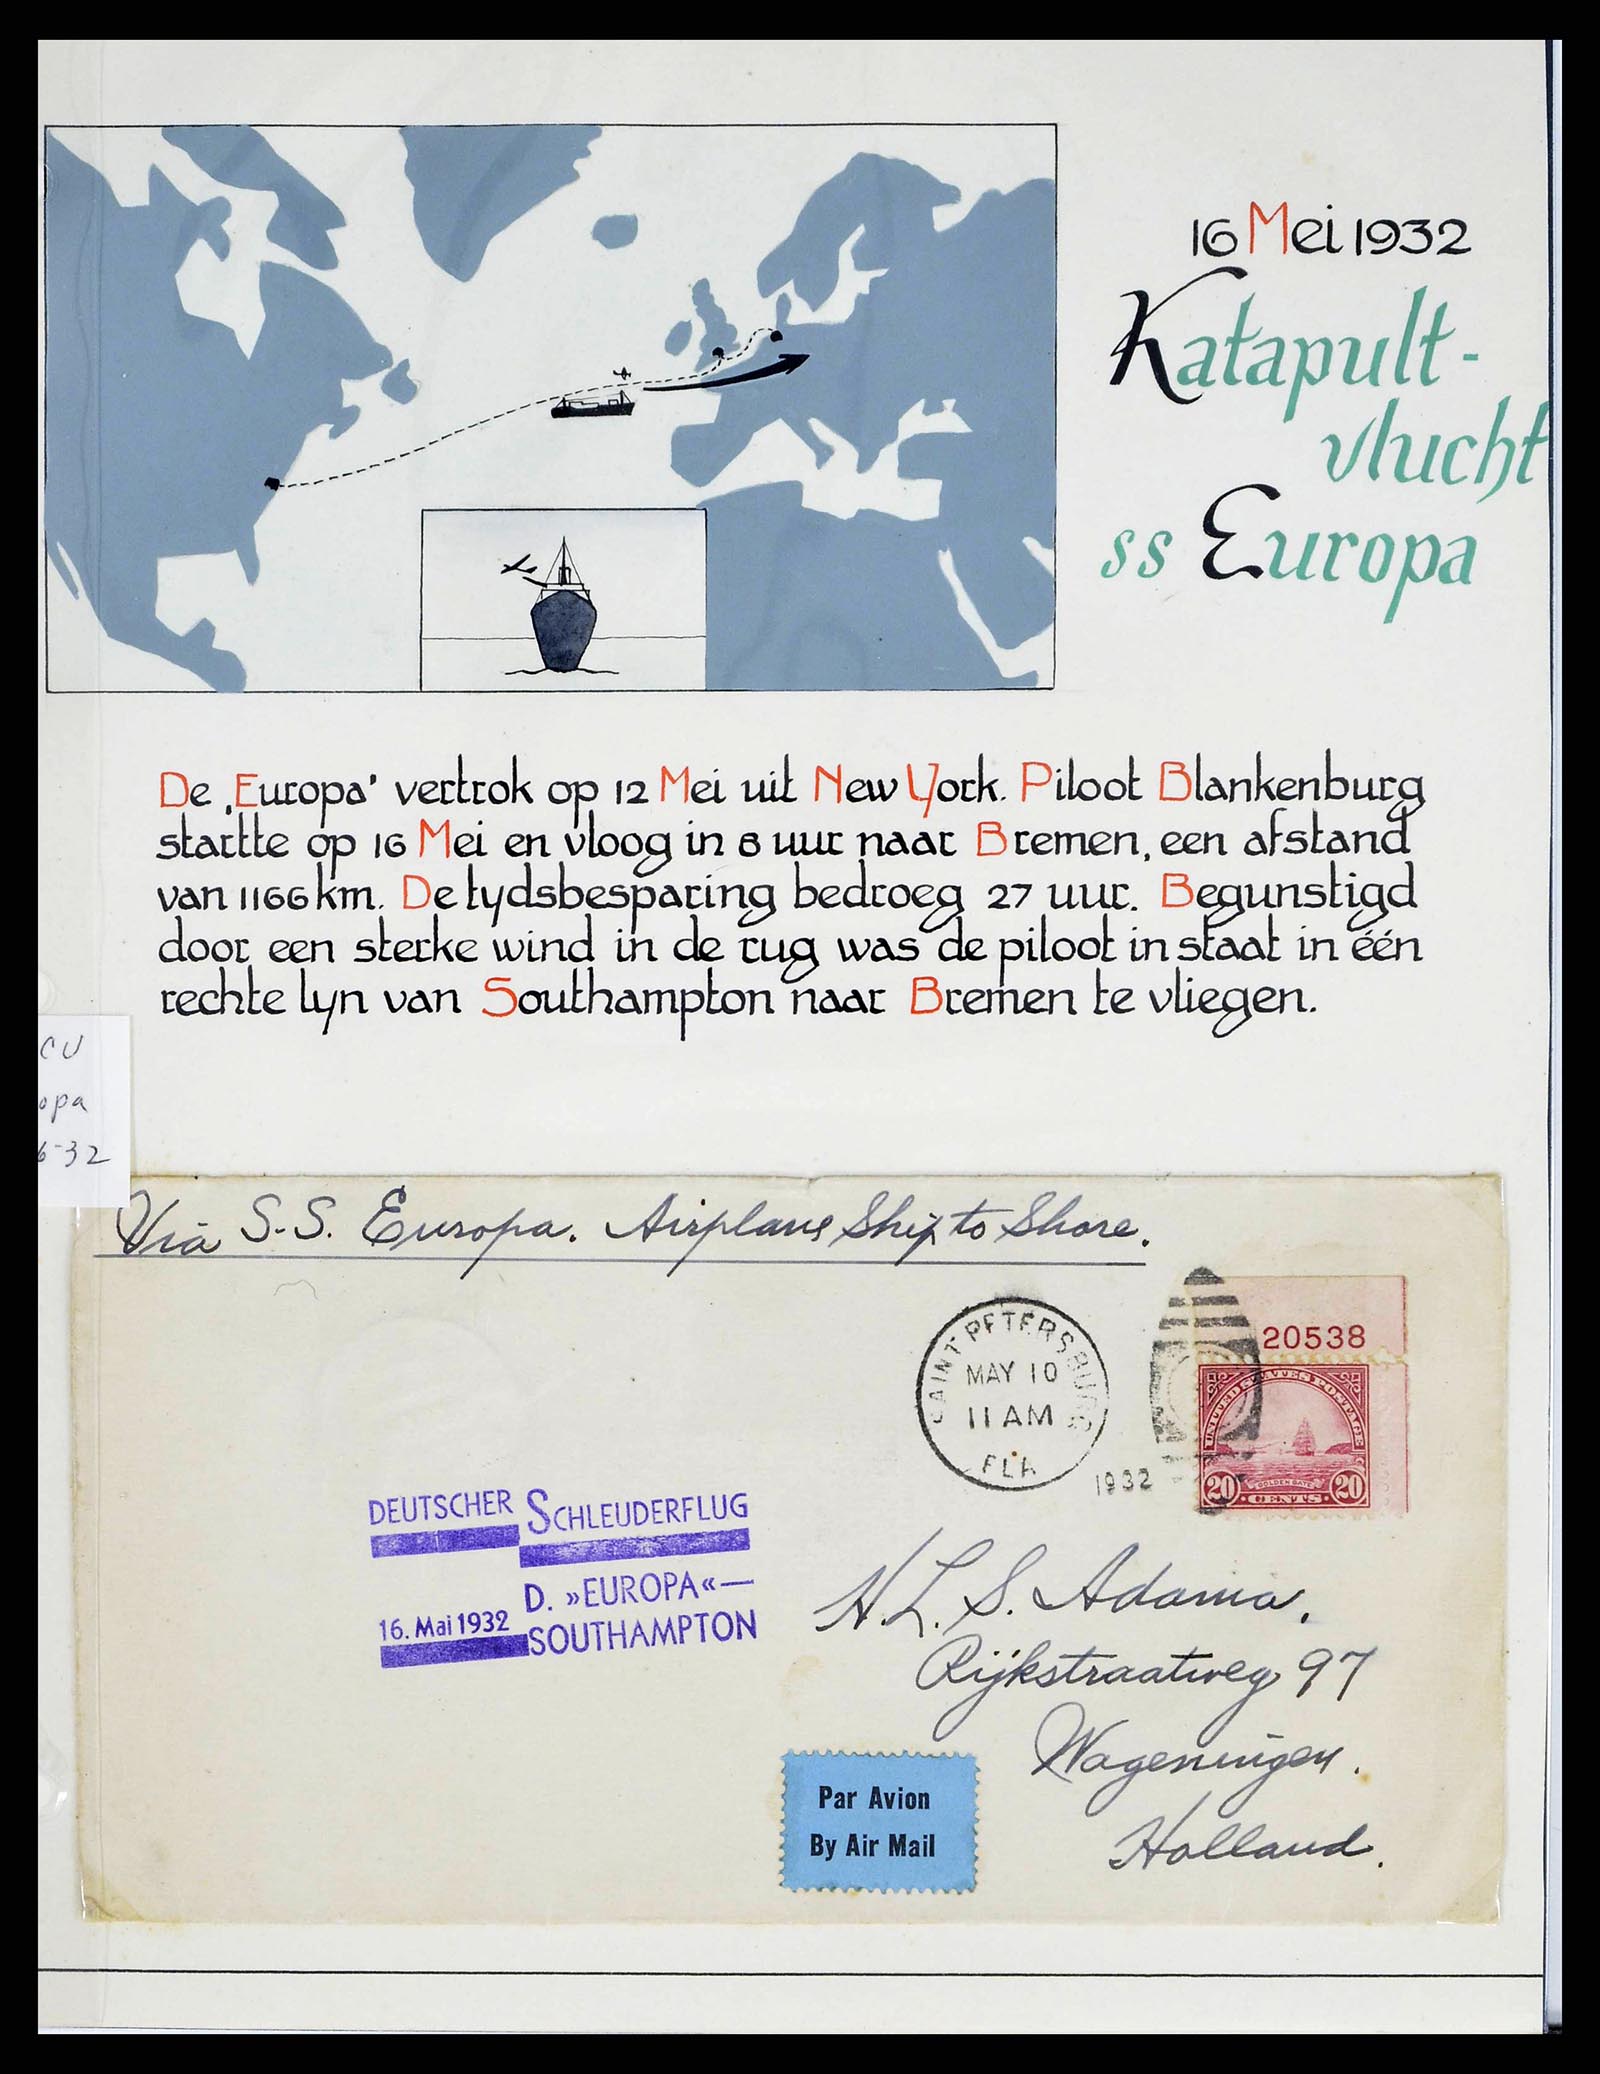 16 Mei 1932
Katapult-
vlucht
ss Europa
De ‚Europa' vertrok op 12 Mei uit New York. Piloot Blankenburg
startte op 16 Mei en vloog in 8 uur naar Bremen, een afstand
van 1166 km. De tydsbesparing bedroeg 27 uur. Begunstigd
door een sterke wind in de rug was de piloot in staat in één
rechte lyn van Southampton naar Bremen te vliegen.
CU
opa
6-32
Via S.S. Europa. Airplane Ship to Shore.
SAINT PETERSBURG
MAY 10
11 AM
FLA
1932
20538
UNITED STATES POSTAGE
GOLDEN GATE
20 CENTS 20
DEUTSCHER SCHLEUDERFLUG
D. »EUROPA«—
16. Mai 1932 SOUTHAMPTON
H. L. S. Adama.
Rijkstraatweg 97
Wageningen.
Holland.
Par Avion
By Air Mail